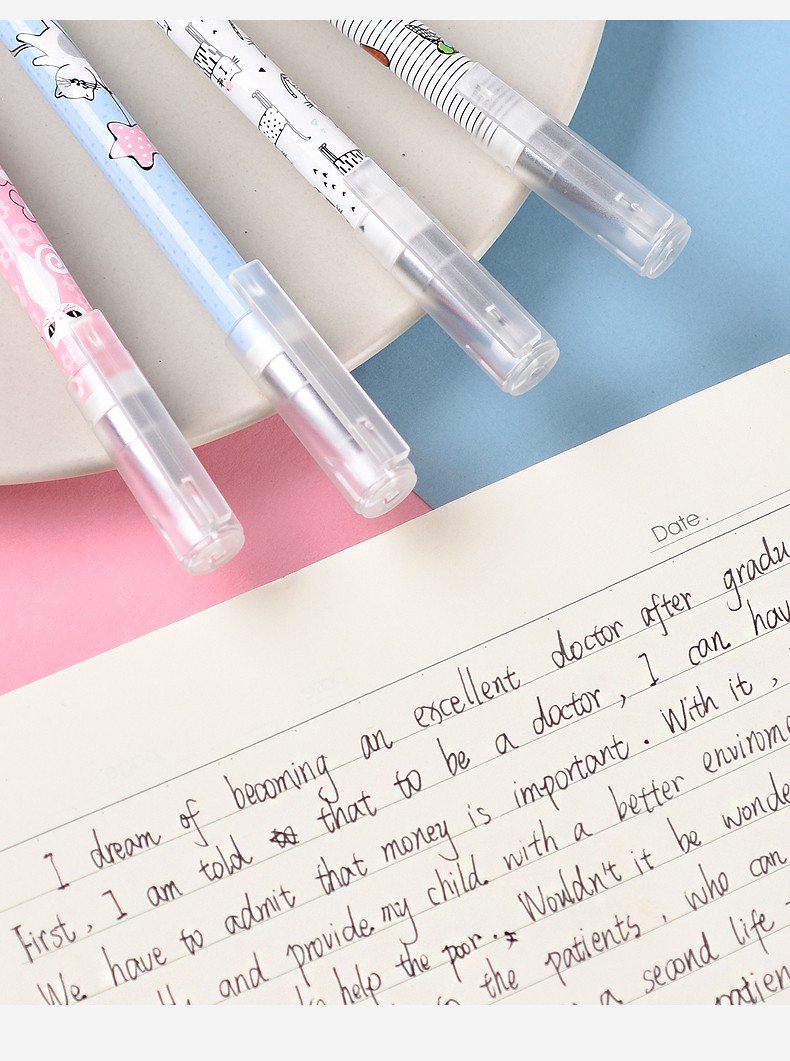 Date.
I dream of becoming an excellent doctor after gradu
First, I am told that to be a doctor, I can hav
We have to admit that money is important. With it,
and provide my child with a better envirome
help the poor. Wouldn't it be wonde
the patients, who can
a second life
patien